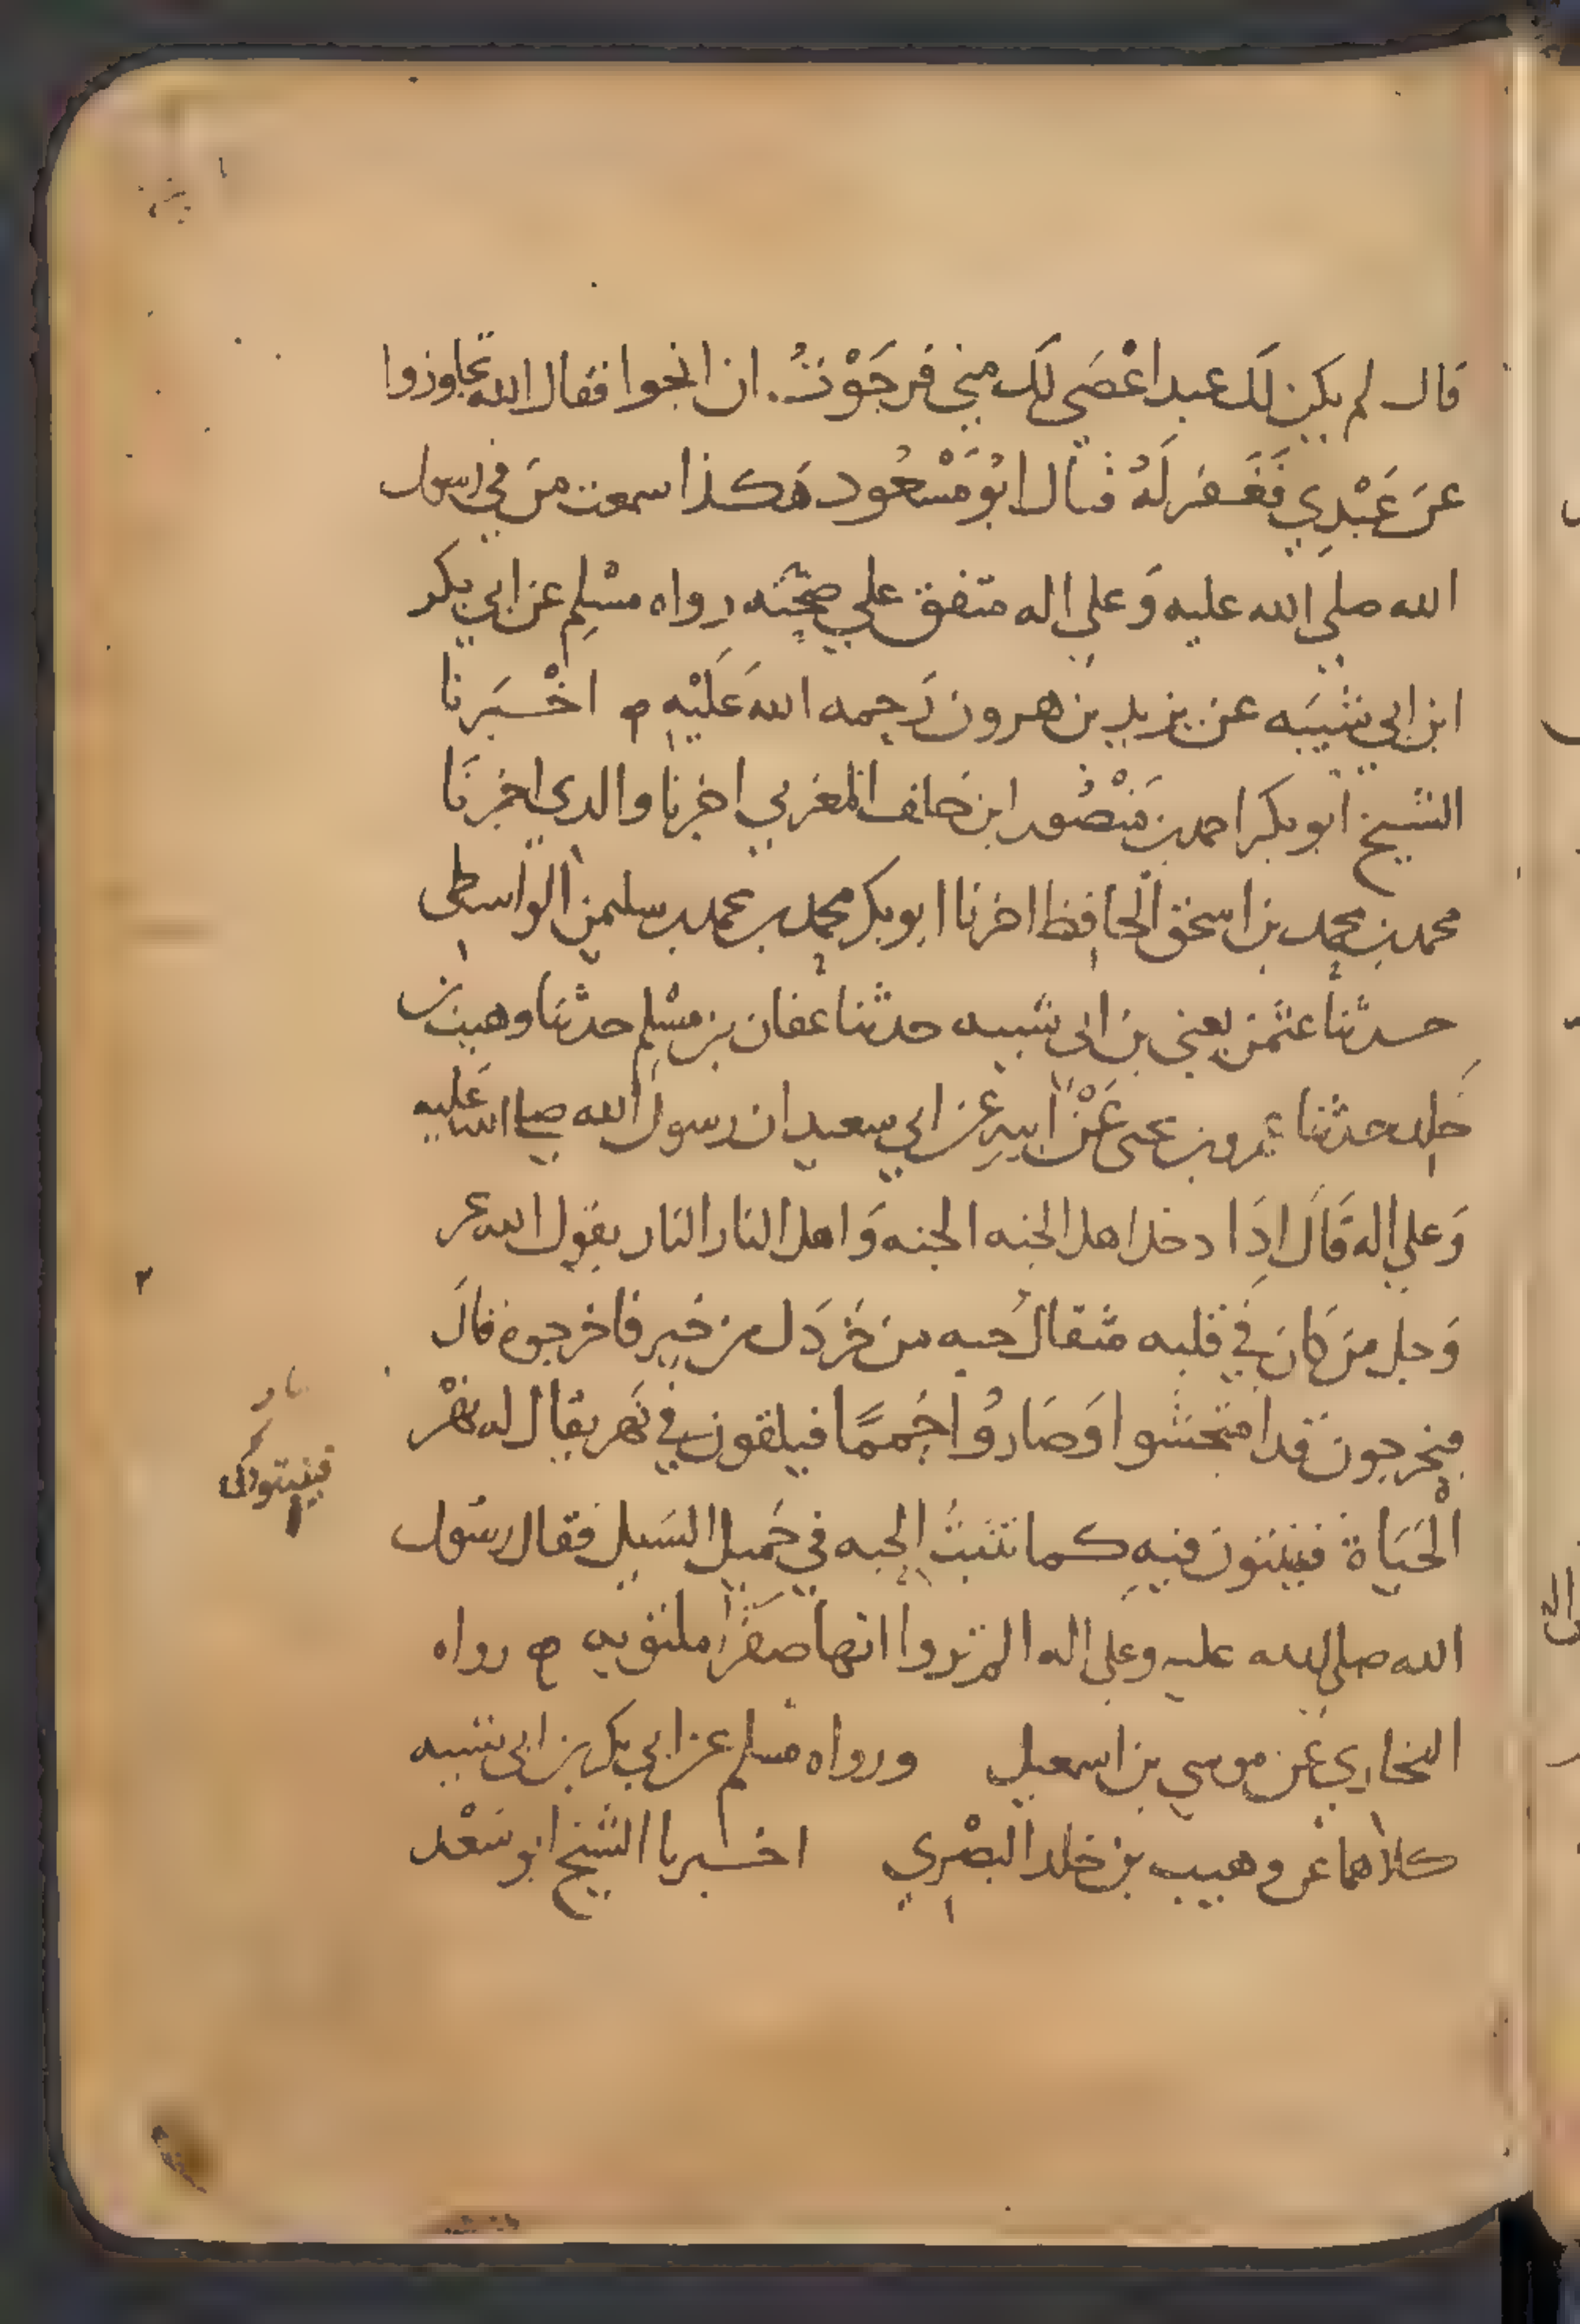 قال لم يكن لك عبد اعْصَى لك مني فرجَوْتُ. ان انجوا فقال الله تجاوزوا
عَن عَبْدِي فَغَفَر لَهُ فقال ابُو مَسْعُود هَكذا سمعت مِن في رسول
الله صلي الله عليه وَعلي اله متفق علي صحته رواه مسْلِم عن ابي بكر
ابن ابي شيبَه عن يزيد بن هرون رَحمه الله عَليْهِ ه اخْبَرنا
الشيخ ابو بكر احمد بن مَنْصُور ابن خلف المغربي اخبرنا والدي اخبرنَا
محمد بن محمد بن اسحق الحافِظ اخبرنا ابو بكر محمد بن محمد بن سليمن الواسطي
حدثنا عثمن يعني بن ابي شيبه حدثنا عفان بن مسْلِم حدثنا وهيب بن
خَلِد حدثنا عمرو بن يحيى عَنْ ابيهِ عَن ابي سعيد ان رسول الله صلى الله عَليه
وَعلي اله قَالَ اذَا دخل اهل الجنه الجنه وَاهل النار النار يقول الله عز
وَجل مَن كانَ في قلبه مثقال حبه من خَرْدَل من خير فاخرجوه قالَ
فيخرجون قد امتحشوا وَصَارُوا حُممًا فيلقون في نَهر يقال له نهْر
الحَيَاة فينبتون فيهِ كما تنبتُ الحبه في حَميل السَيل فقال رسُول
الله صلي الله عليه وعلي اله الم تروا انها صفرا ملتويه ه رواه
البخاري عَن موسي بن اسمعيل ورواه مسلم عن ابي بكر بن ابي شيبه
كلاهما عن وهيب بن خلد البصْرِي اخبرنا الشيخ ابو سَعْد